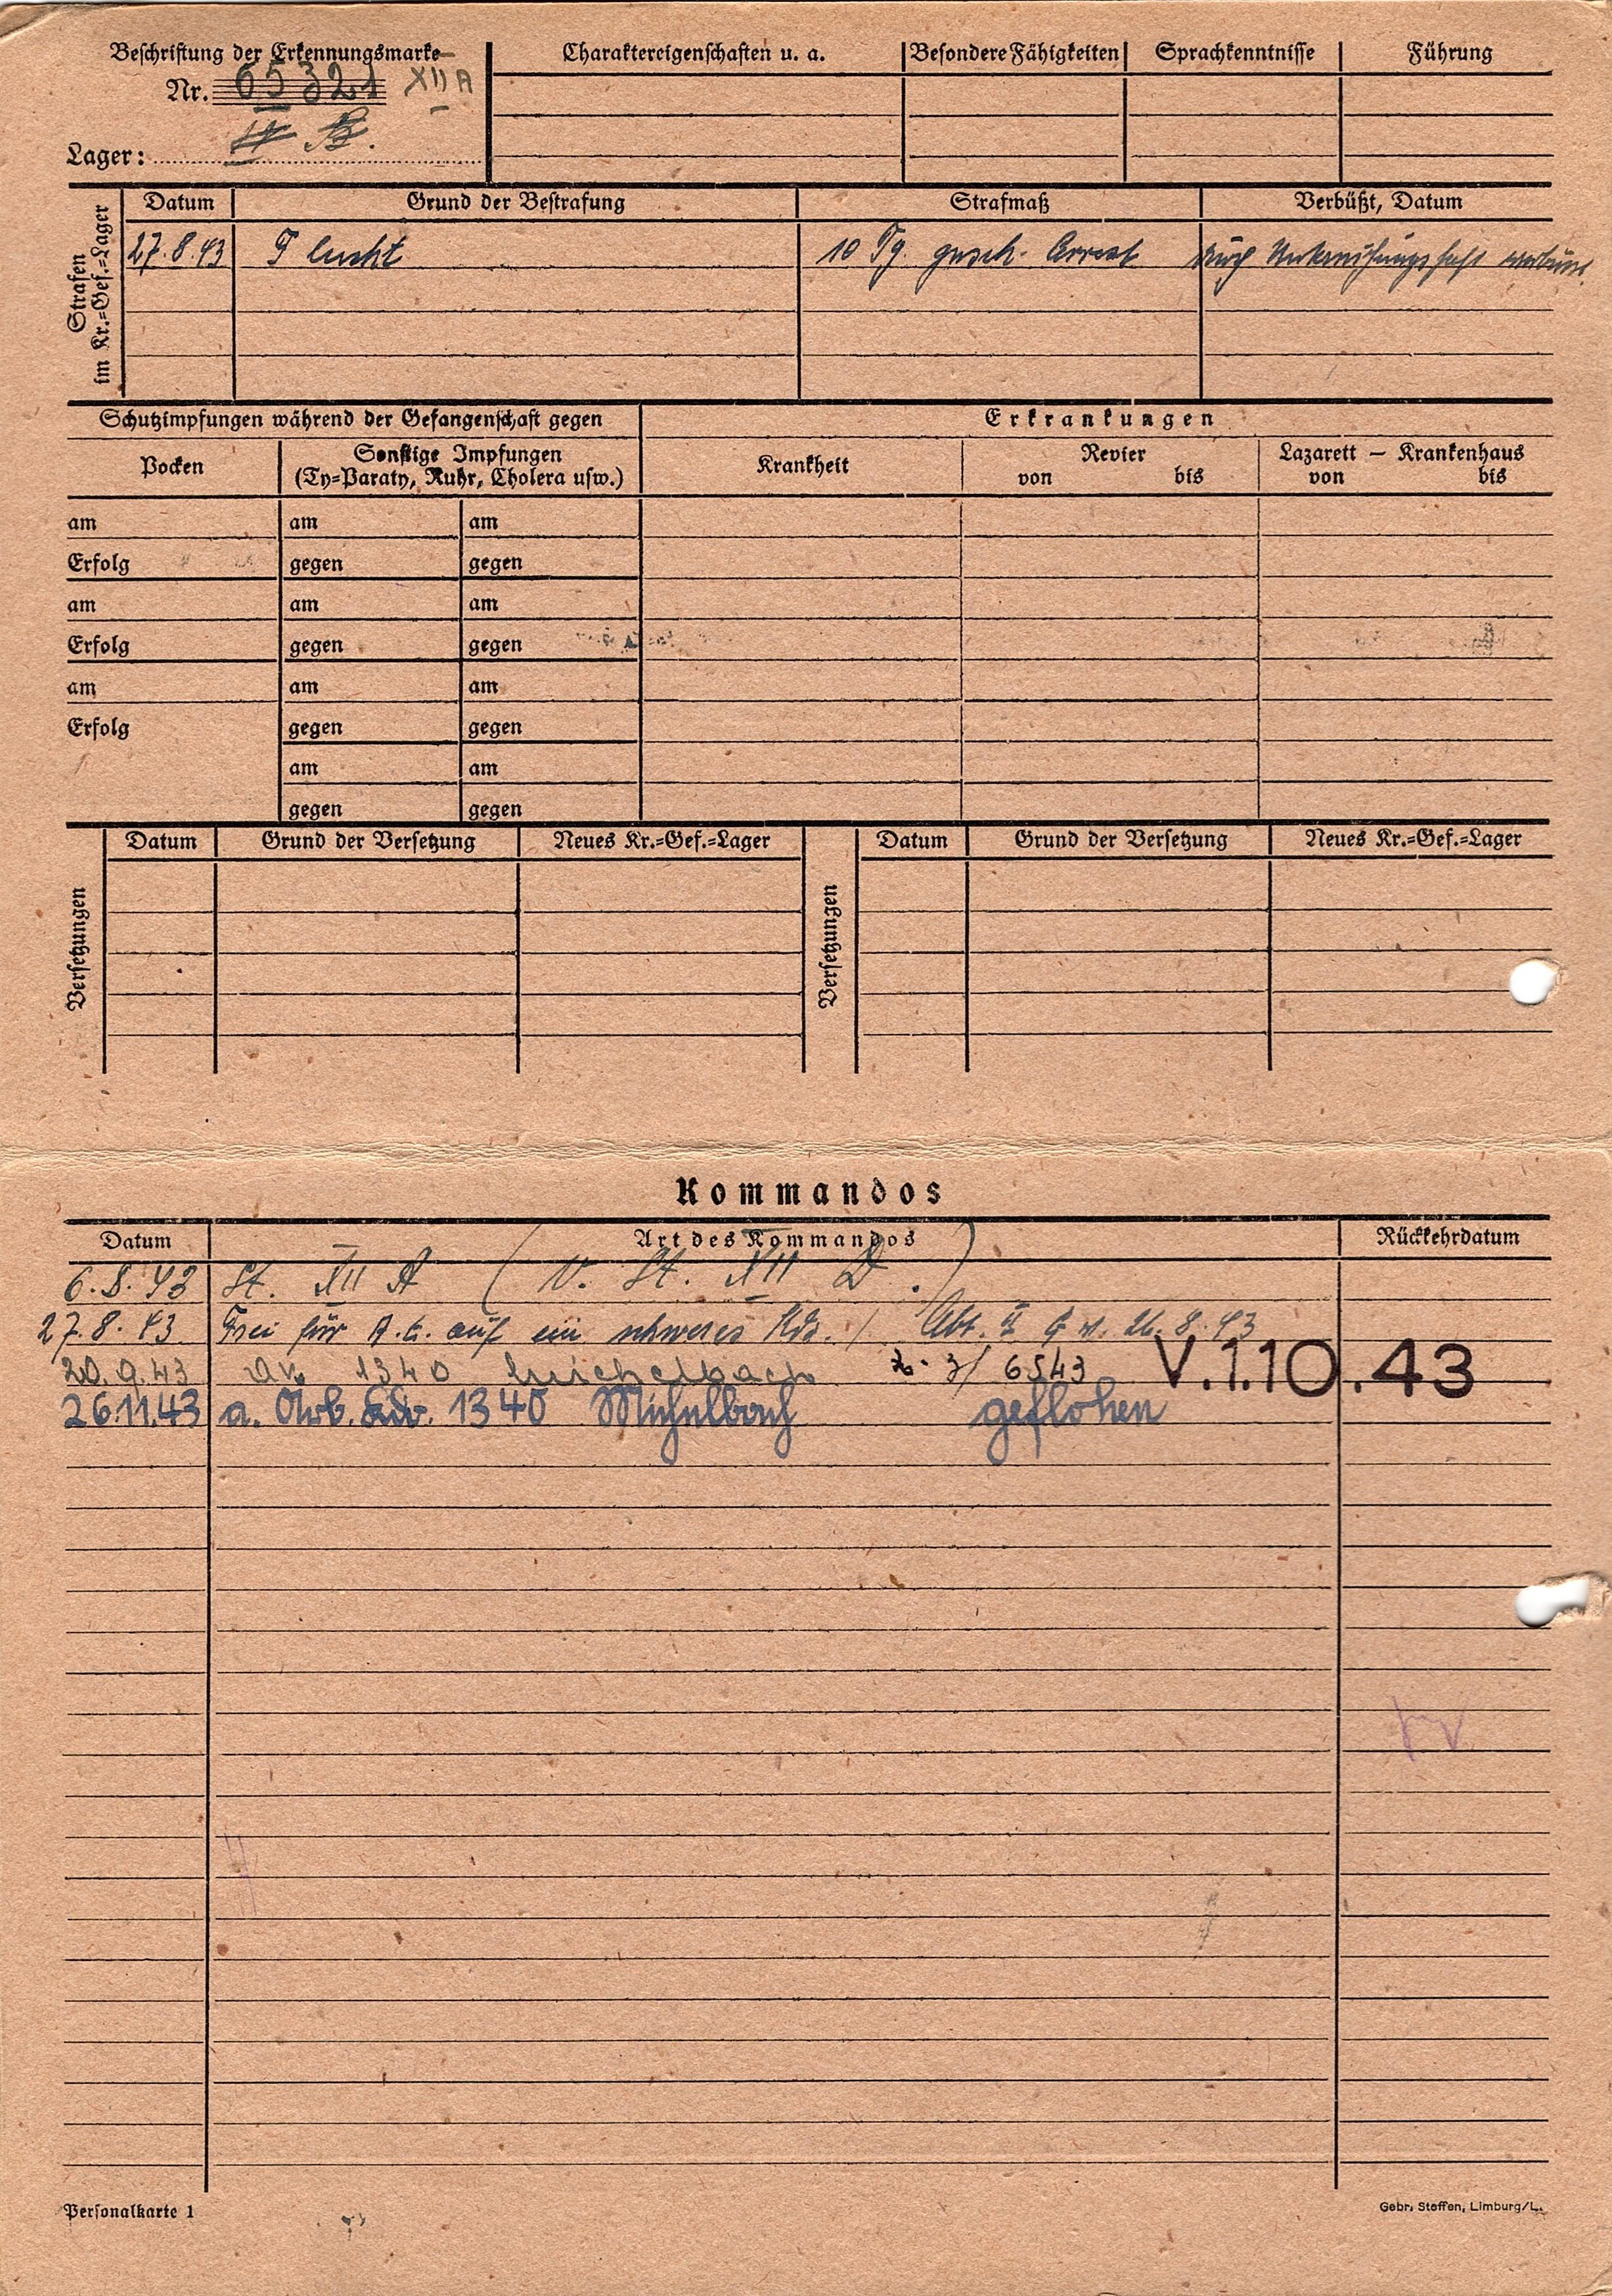 Beschriftung der Erkennungsmarke
Nr. 65321 XII A
Lager: B.
Charaktereigenschaften u. a. Besondere Fähigkeiten Sprachkenntnisse Führung
Strafen im Kr.=Gef.=Lager
Datum Grund der Bestrafung Strafmaß Verbüßt, Datum
27.8.43 Flucht 10 Tg. gesch. Arrest durch Untersuchungshaft verbüßt.
Schutzimpfungen während der Gefangenschaft gegen Erkrankungen
Pocken Sonstige Impfungen Krankheit Revier Lazarett — Krankenhaus
(Ty=Paraty, Ruhr, Cholera usw.) von bis von bis
am am am
Erfolg gegen gegen
am am am
Erfolg gegen gegen
am am am
Erfolg gegen gegen
am am
gegen gegen
Versetzungen Datum Grund der Versetzung Neues Kr.=Gef.=Lager Versetzungen Datum Grund der Versetzung Neues Kr.=Gef.=Lager
Kommandos
Datum Art des Kommandos Rückkehrdatum
6.8.43 St. XII A (v. St. XII D.)
27.8.43 Frei für A.E. auf ein schweres Kdo. / Abt. 26.8.43
20.9.43 AK 1340 Michelbach 6543 V.1.10.43
26.11.43 a. Arb. Kdo. 1340 Michelbach geflohen
Personalkarte 1 Gebr. Steffen, Limburg/L.